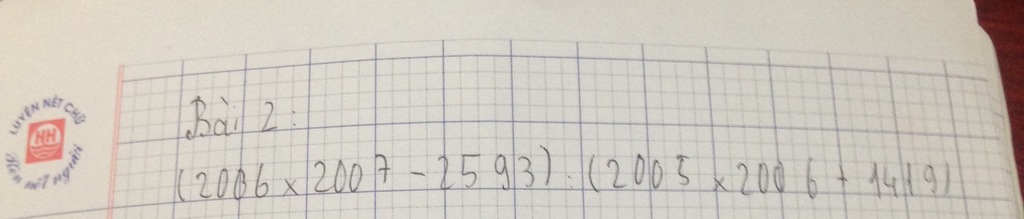 LUYỆN NÉT CHỮ
HH
Rèn nết người
Bài 2:
(2006 × 2007 - 2593) : (2005 × 2006 + 1419)